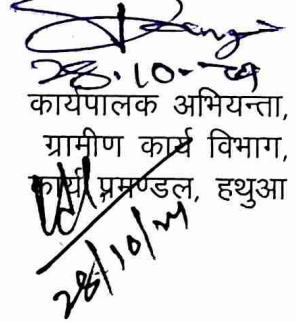 28.10.24
कार्यपालक अभियन्ता,
ग्रामीण कार्य विभाग,
कार्य प्रमण्डल, हथुआ
28/10/24